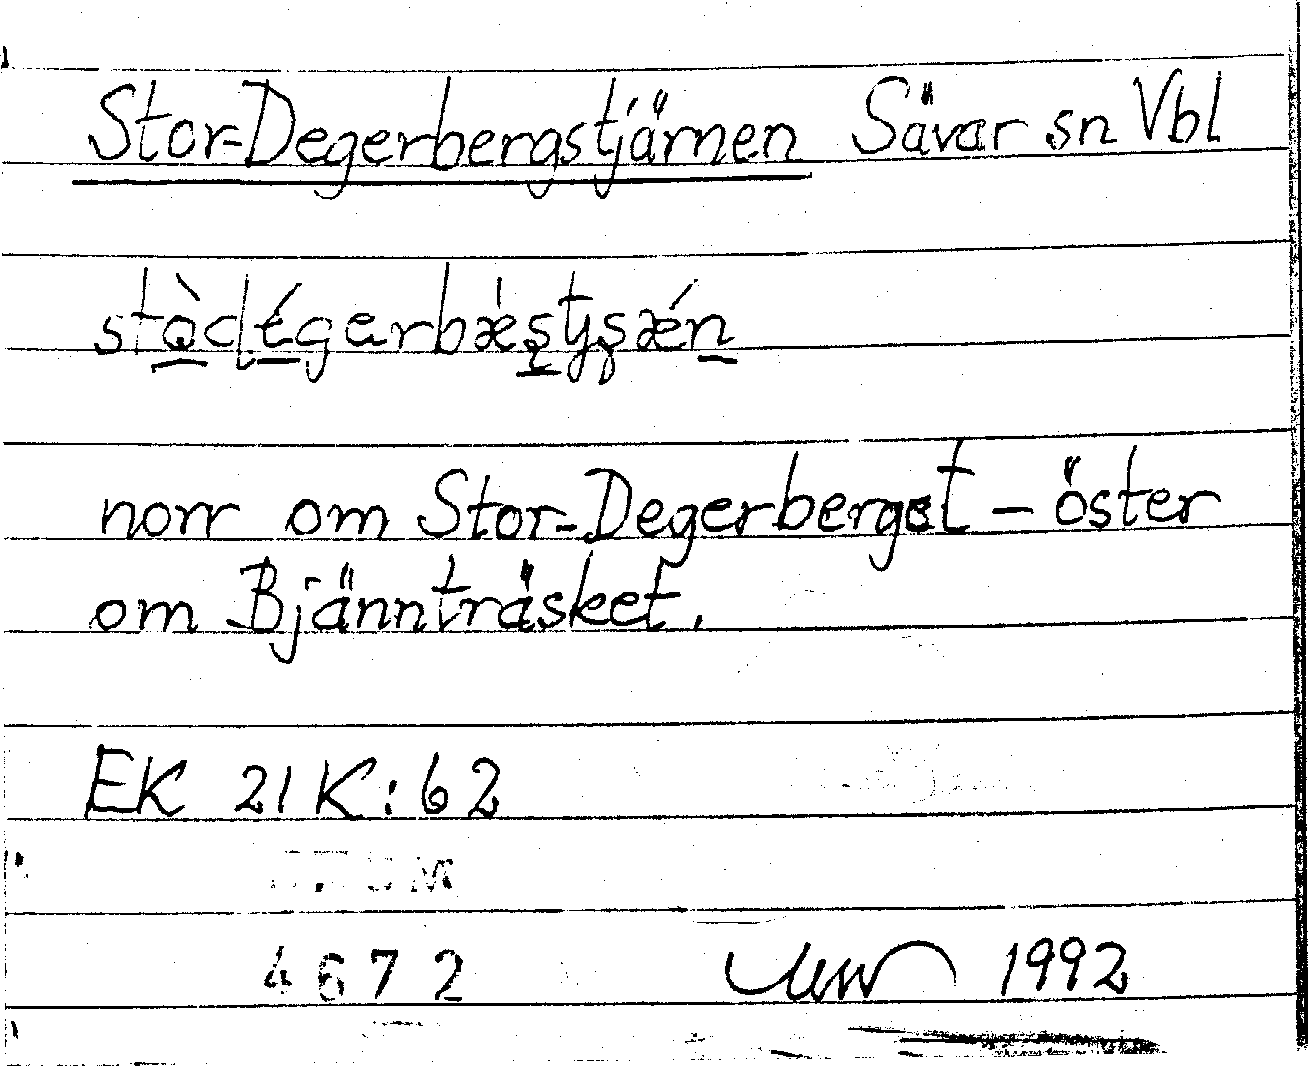 Stor-Degerbergstjärnen Sävar sn Vbl
norr om Stor-Degerberget - öster
om Bjännträsket.
EK 21 K:62
4672 1992